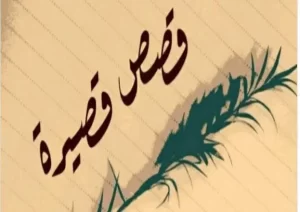 قصص قصيرة